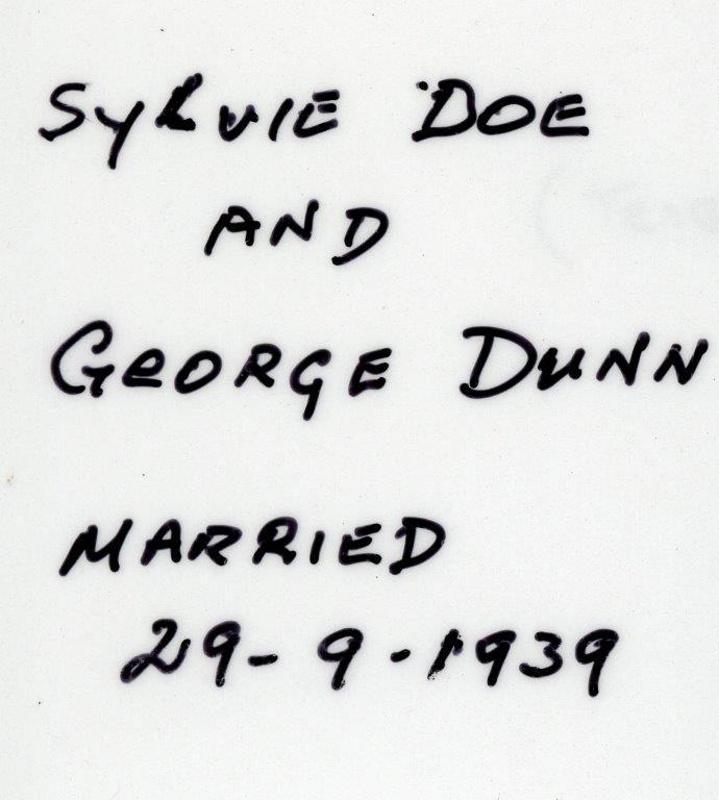 SYLVIE DOE
AND
GEORGE DUNN
MARRIED
29-9-1939